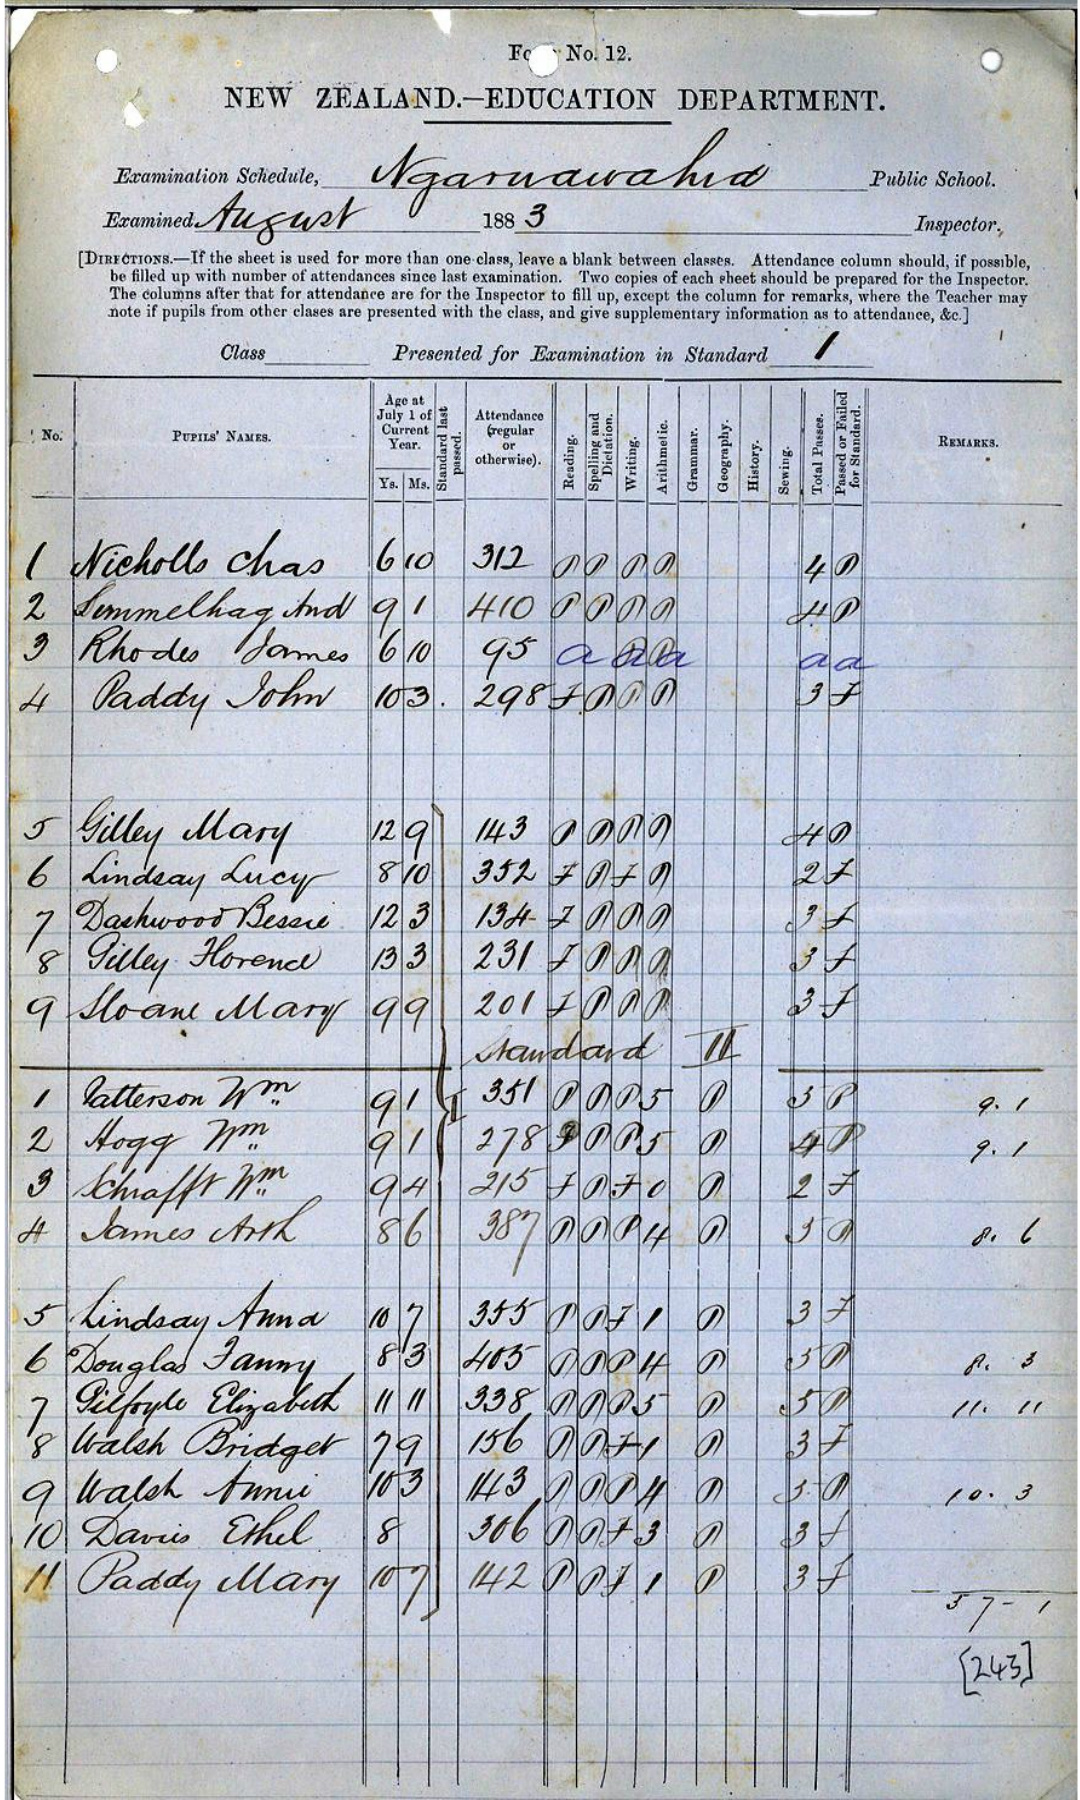 Fo No. 12.
NEW ZEALAND.—EDUCATION DEPARTMENT.
Examination Schedule, Ngaruawahia Public School.
Examined August 1883 Inspector.
[DIRECTIONS.—If the sheet is used for more than one class, leave a blank between classes. Attendance column should, if possible,
be filled up with number of attendances since last examination. Two copies of each sheet should be prepared for the Inspector.
The columns after that for attendance are for the Inspector to fill up, except the column for remarks, where the Teacher may
note if pupils from other clases are presented with the class, and give supplementary information as to attendance, &c.]
Class Presented for Examination in Standard 1
No. PUPILS' NAMES. Age at July 1 of Current Year. Ys. Ms. Standard last passed. Attendance (regular or otherwise). Reading. Spelling and Dictation. Writing. Arithmetic. Grammar. Geography. History. Sewing. Total Passes. Passed or Failed for Standard. REMARKS.
1 Nicholls Chas 6 10 312 P P P P 4 P
2 And 9 1 410 P P P P 4 P
3 Rhodes James 6 10 95 a a a a a
4 Paddy John 10 3 298 F P P P 3 F
5 Gilley Mary 12 9 143 P P P P 4 P
6 Lindsay Lucy 8 10 352 F P F P 2 F
7 Dashwood Bessie 12 3 134 F P P P 3 F
8 Gilley Florence 13 3 231 F P P P 3 F
9 Sloane Mary 9 9 201 F P P P 3 F
Standard II
1 Patterson Wm 9 1 I 351 P P P 5 P 5 P 9. 1
2 Hogg Wm 9 1 278 F P P 5 P 4 P 9. 1
3 Schrafft Wm 9 4 215 F P F 0 P 2 F
4 James Arth 8 6 387 P P P 4 P 5 P 8. 6
5 Lindsay Anna 10 7 355 P P F 1 P 3 F
6 Douglas Fanny 8 3 405 P P P 4 P 5 P 8. 3
7 Gilfoyle Elizabeth 11 11 338 P P P 5 P 5 P 11. 11
8 Walsh Bridget 7 9 156 P P F 1 P 3 F
9 Walsh Annie 10 3 143 P P P 4 P 5 P 10. 3
10 Davies Ethel 8 306 P P F 3 P 3 F
11 Paddy Mary 10 7 142 P P F 1 P 3 F
57 - 1
[243]